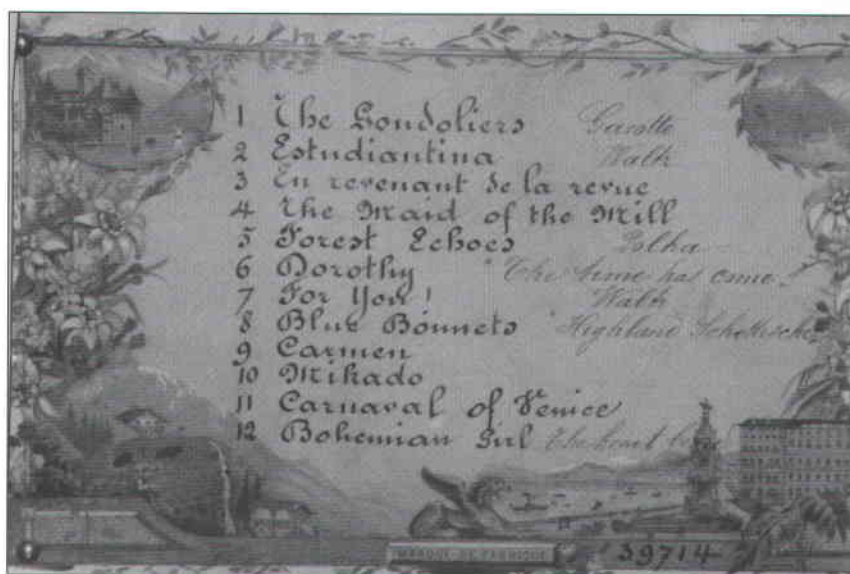 1 The Gondoliers Gavotte
2 Estudiantina Waltz
3 En revenant de la revue
4 The Maid of the Mill
5 Forest Echoes Polka
6 Dorothy "The time has come"
7 For You! Waltz
8 Blue Bonnets "Highland Schottische
9 Carmen
10 Mikado
11 Carnaval of Venice
12 Bohemian Girl The heart
MARQUE DE FABRIQUE 39714